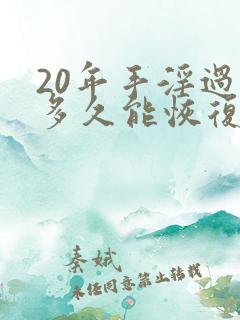 20年手淫過
多久能恢復
秦娥
未经同意禁止转载